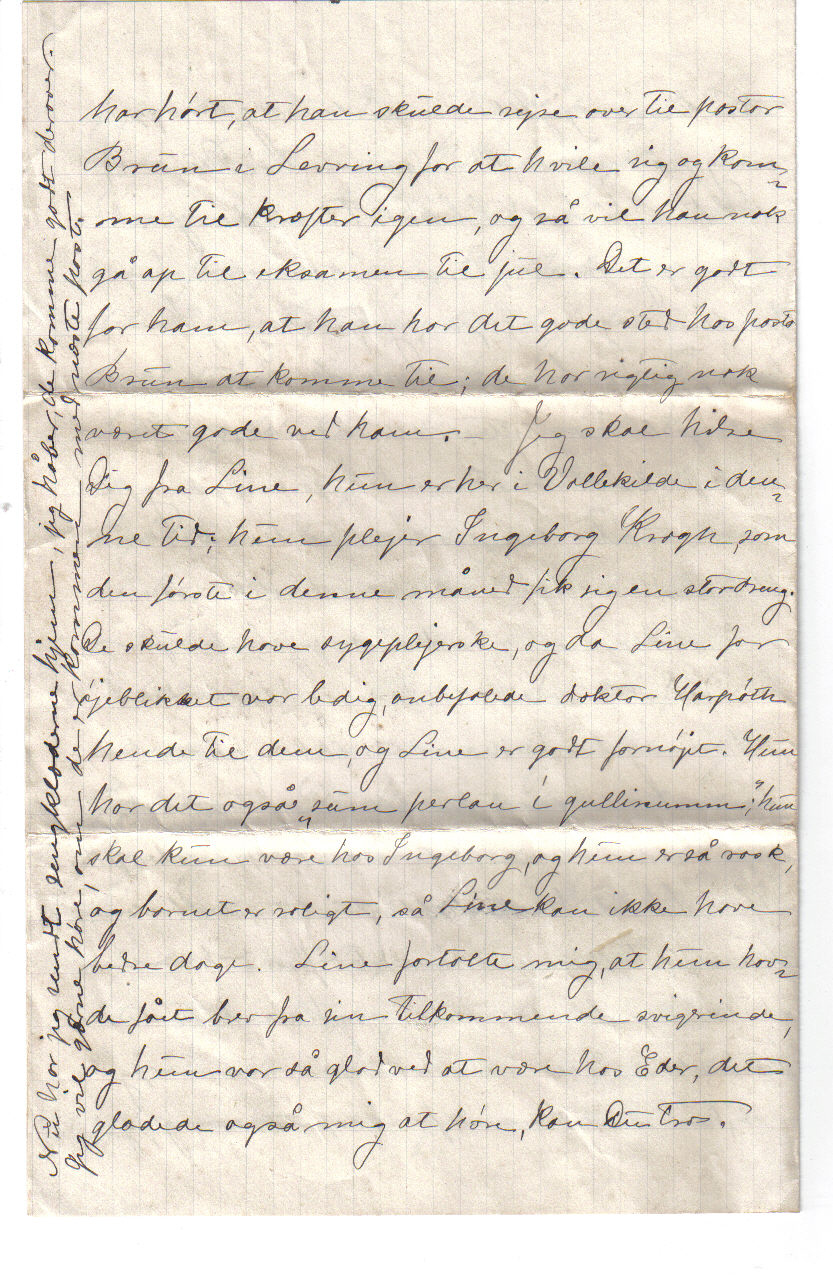 har hørt, at han skulde rejse over til pastor
Brun i Levring for at hvile sig og kom=
me til kræfter igen, og så vil han nok
gå op til eksamen til jul. Det er godt
for ham, at han har det gode sted hos pastor
Brun at komme til; de har rigtig nok
været gode ved ham. – Jeg skal hilse
Dig fra Line, hun er her i Vallekilde i den=
ne tid; hun plejer Ingeborg Kragh, som
den første i denne måned fik sig en stor dreng.
De skulde have sygeplejerske, og da Line for
øjeblikket var ledig, anbefalede doktor Harpøth
hende til dem, og Line er godt fornøjet. Hun
har det også „sum perlan i gullinumm“; hun
skal kun være hos Ingeborg, og hun er så rask,
og barnet er roligt, så Line kan ikke have
bedre dage. Line fortalte mig, at hun hav=
de fået brev fra sin tilkommende svigerinde,
og hun var så glad ved at være hos Eder, det
glædede også mig at høre, kan Du tro.
Nu har jeg sendt sengklæderne hjem, jeg håber, de komme godt derover.
Jeg vil gærne høre, om de er kommen med næste post.